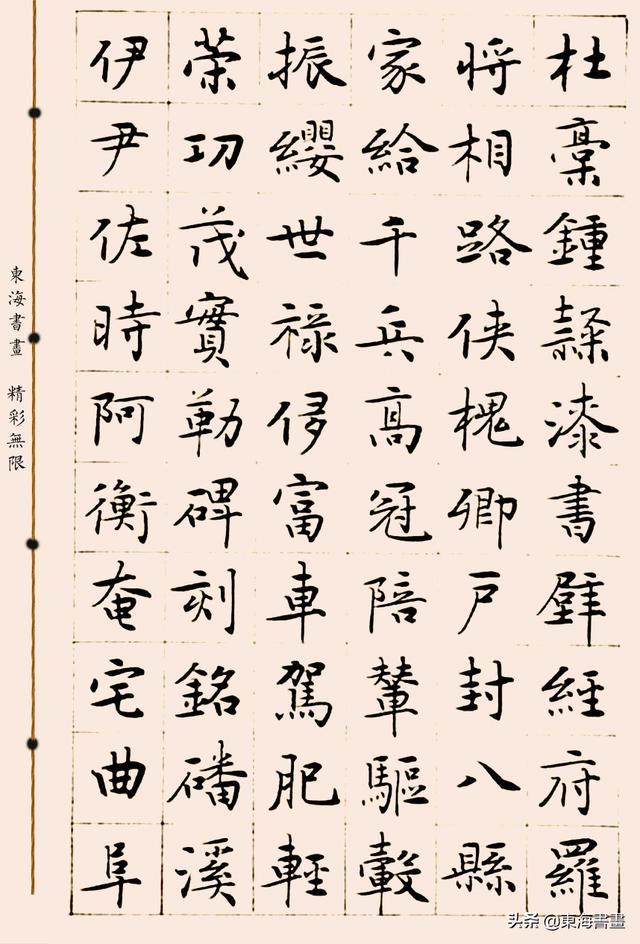 杜稾鍾隸漆書壁經府羅
将相路侠槐卿戸封八縣
家給千兵髙冠陪輦驅轂
振纓世禄侈富車駕肥輕
荣功茂實勒碑刻銘磻溪
伊尹佐時阿衡奄宅曲阜
東海書畫 精彩無限
头条 @東海書畫